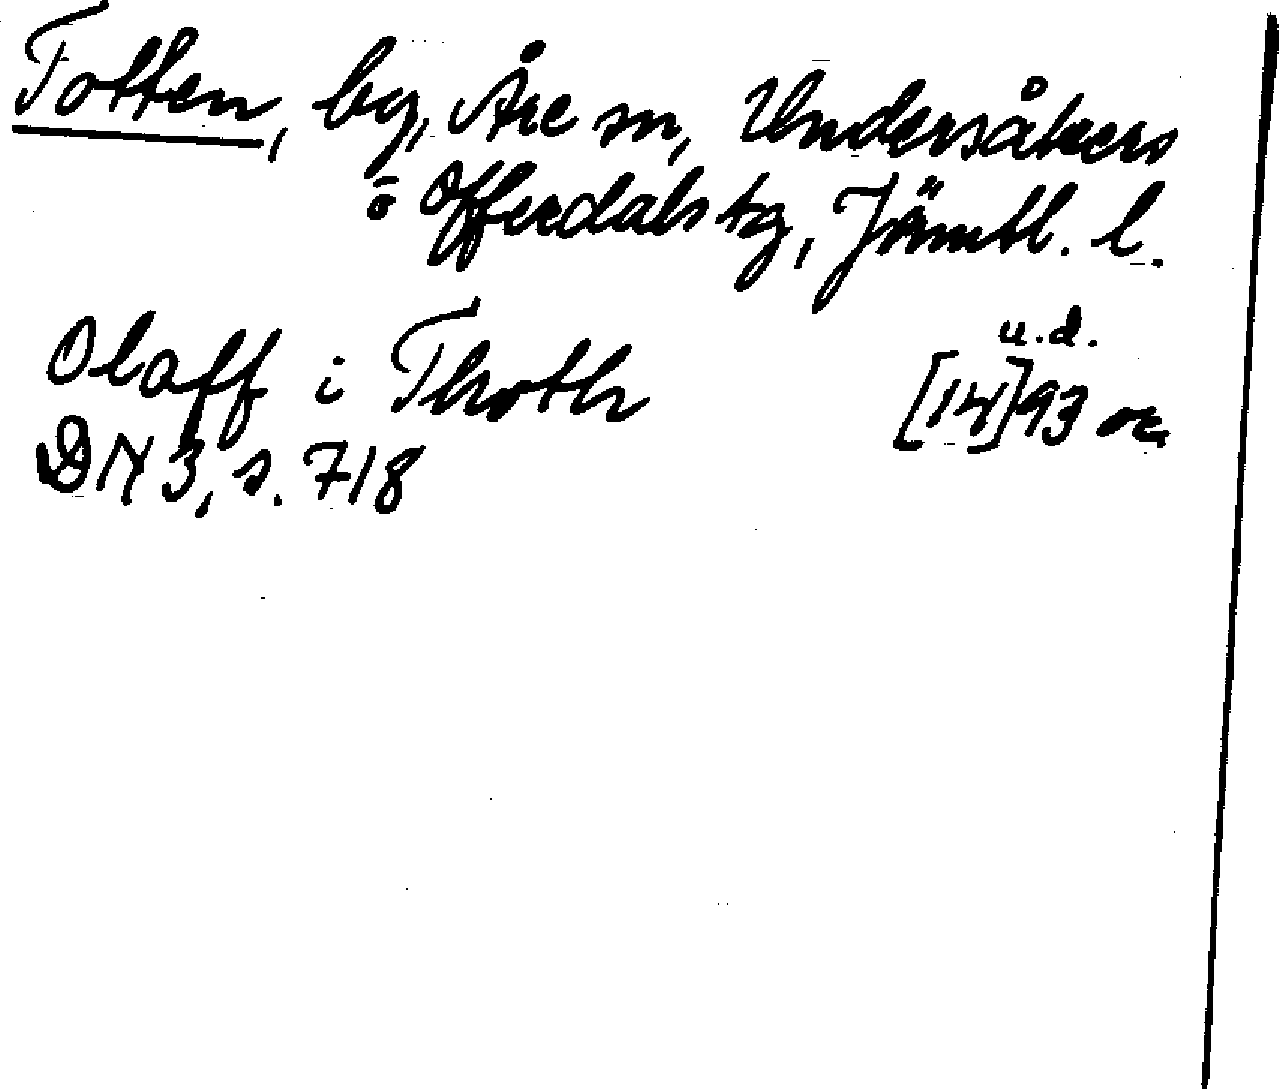 Totten, by, Åre sn, Undersåkers
o Offerdals tg, Jämtl. l.
Olaff i Thoth u.d.
[14]93 or
DN 3, s. 718